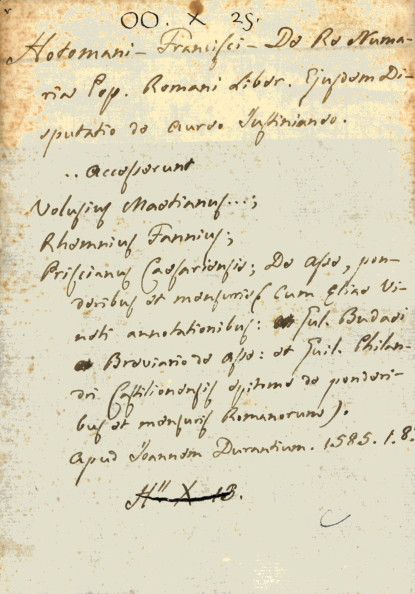 OO. X 25.
Hotomani – Francisci – De Re Numa-
ria Pop. Romani Liber. Ejusdem Di-
sputatio de aureo Justiniano.
.. Accesserunt
Volusius Maetianus...;
Rhemnius Fannius;
Priscianus Caesariensis; De Asse, pon-
deribus et mensuris (Cum Eliae Vi-
neti annotationibus: Gul. Budaei
Breviario de asse: et Guil. Philan-
dri Castilionensis epitome de ponderi-
bus et mensuris Romanorum).
Apud Joannem Durantium. 1585. 1.8.
H" X 13.